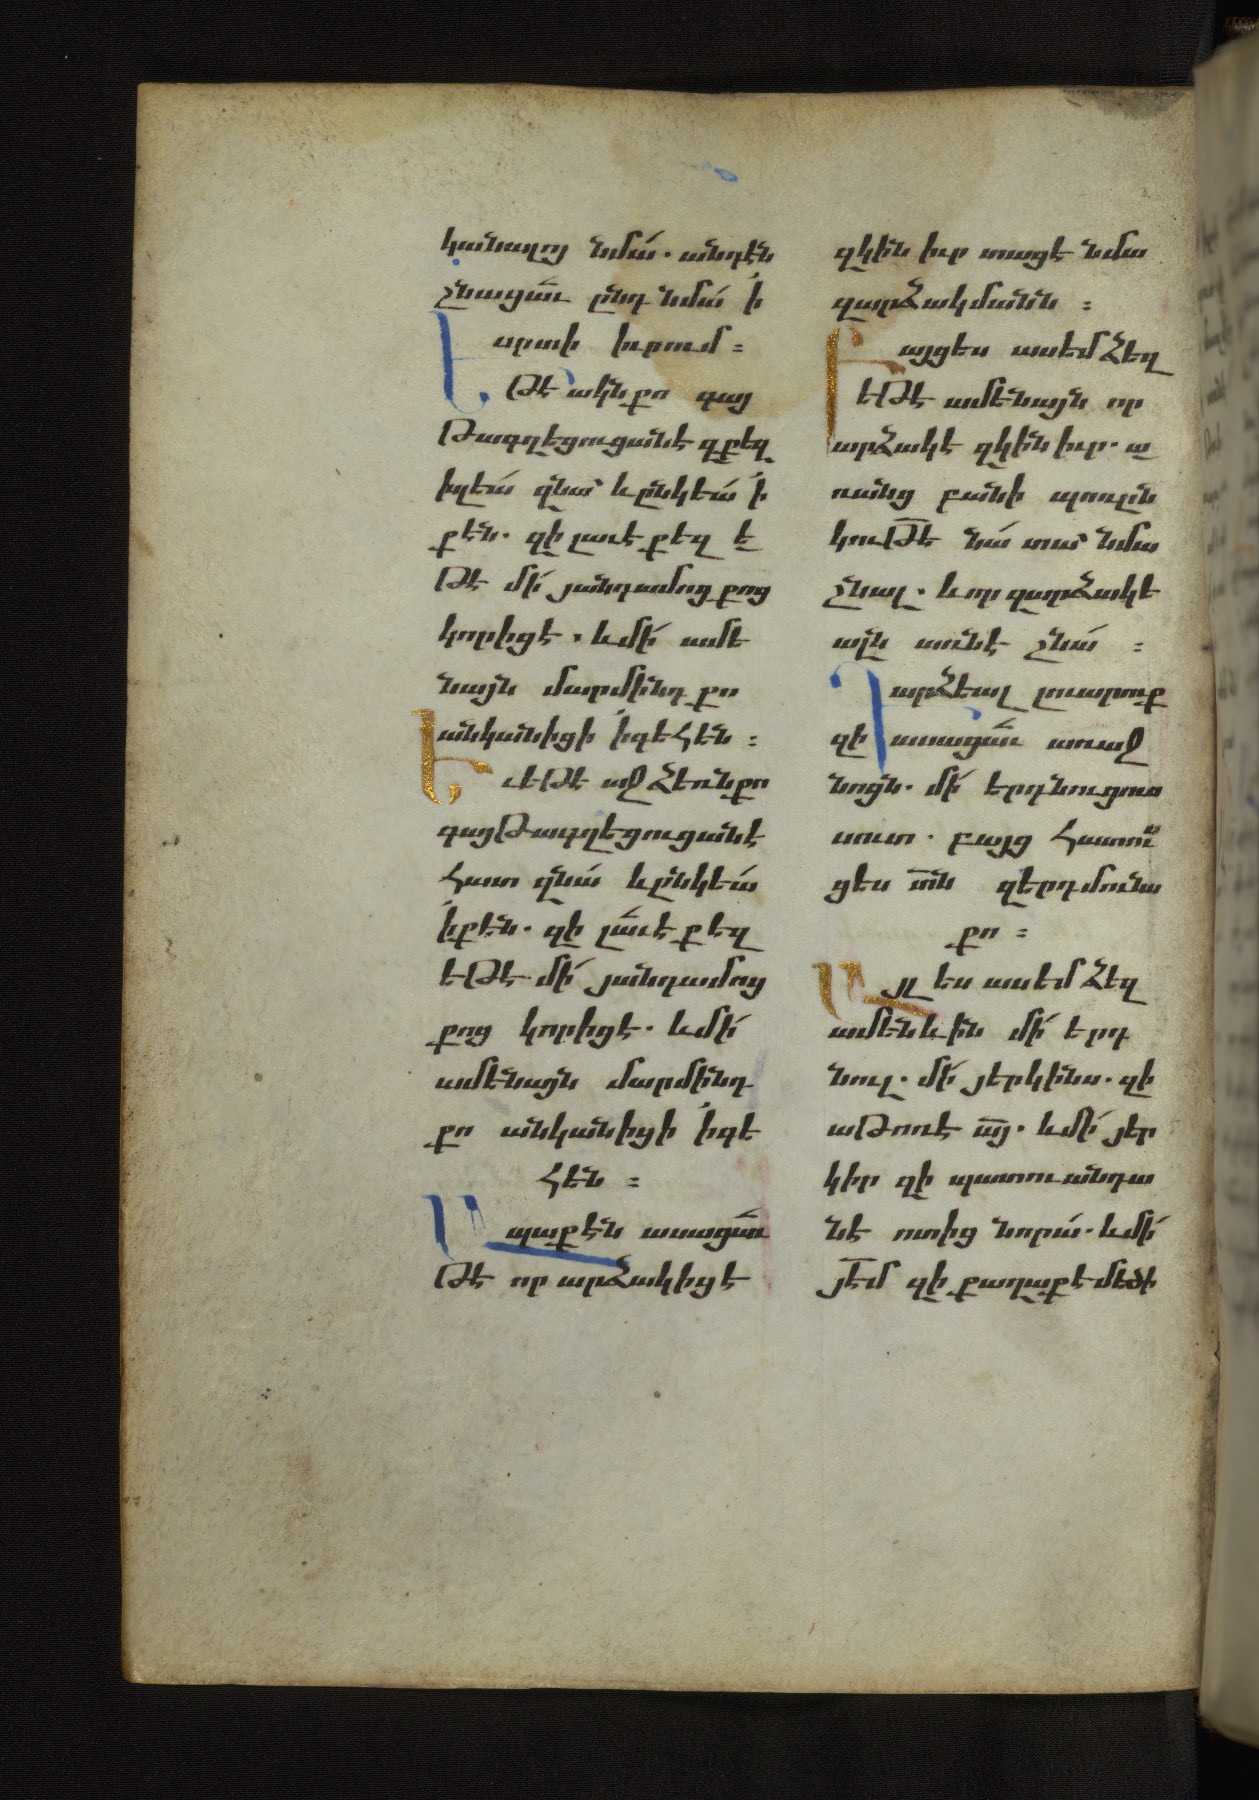 կանալոյ նմա՛. անդէն
շնացաւ ընդ նմա՛ ի՛
սրտի իւրում ։
Եթէ ակն քո գայ
թագղեցուցանէ զքեզ
խլեա՛ զնա՛ և ընկեա՛ ի՛
քէն. զի լաւ է քեզ է
թէ մի՛ յանդամոց քոց
կորիցէ. և մի՛ ամե
նայն մարմինդ քո
անկանիցի ի՛ գեհեն ։
Եւ եթէ աջ ձեռն քո
գայթագղեցուցանէ
հատ զնա՛ և ընկեա՛
ի՛ քէն. զի լա՛ւ է քեզ
եթէ մի՛ յանդամոց
քոց կորիցէ. և մի՛
ամենայն մարմինդ
քո անկանիցի ի՛ գե
հեն ։
Ապաքէն ասացաւ
թէ որ արձակիցէ
զկին իւր տացէ նմա
զարձակմանն ։
Բայց ես ասեմ ձեզ
եթէ ամենայն որ
արձակէ զկին իւր. ա
ռանց բանի պոռըն
կութե նա՛ տա՛ նմա
շնալ. և որ զարձակե
ալն առնէ շնա՛ ։
Դարձեալ լուարուք
զի ասացաւ առաջ
նոցն. մի՛ երդնուցուս
սուտ. բայց հատու
ցես տն զերդմունս
քո ։
Այլ ես ասեմ ձեզ
ամենևին մի՛ երդ
նուլ. մի՛ յերկինս. զի
աթոռ է այ. և մի՛ յեր
կիր զի պատուանդա
նէ ոտից նորա՛. և մի՛
յեմ զի քաղաք է մեծի